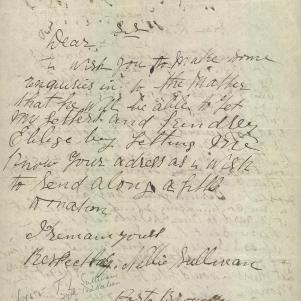 Dear
I wish you to make some
enquiries in to the Matter
that he will be able to get
my letters and
Oblige by letting me
Know your adress as i wish
to send along a little
donation
I remain yours
Respectfully Nellie Sullivan